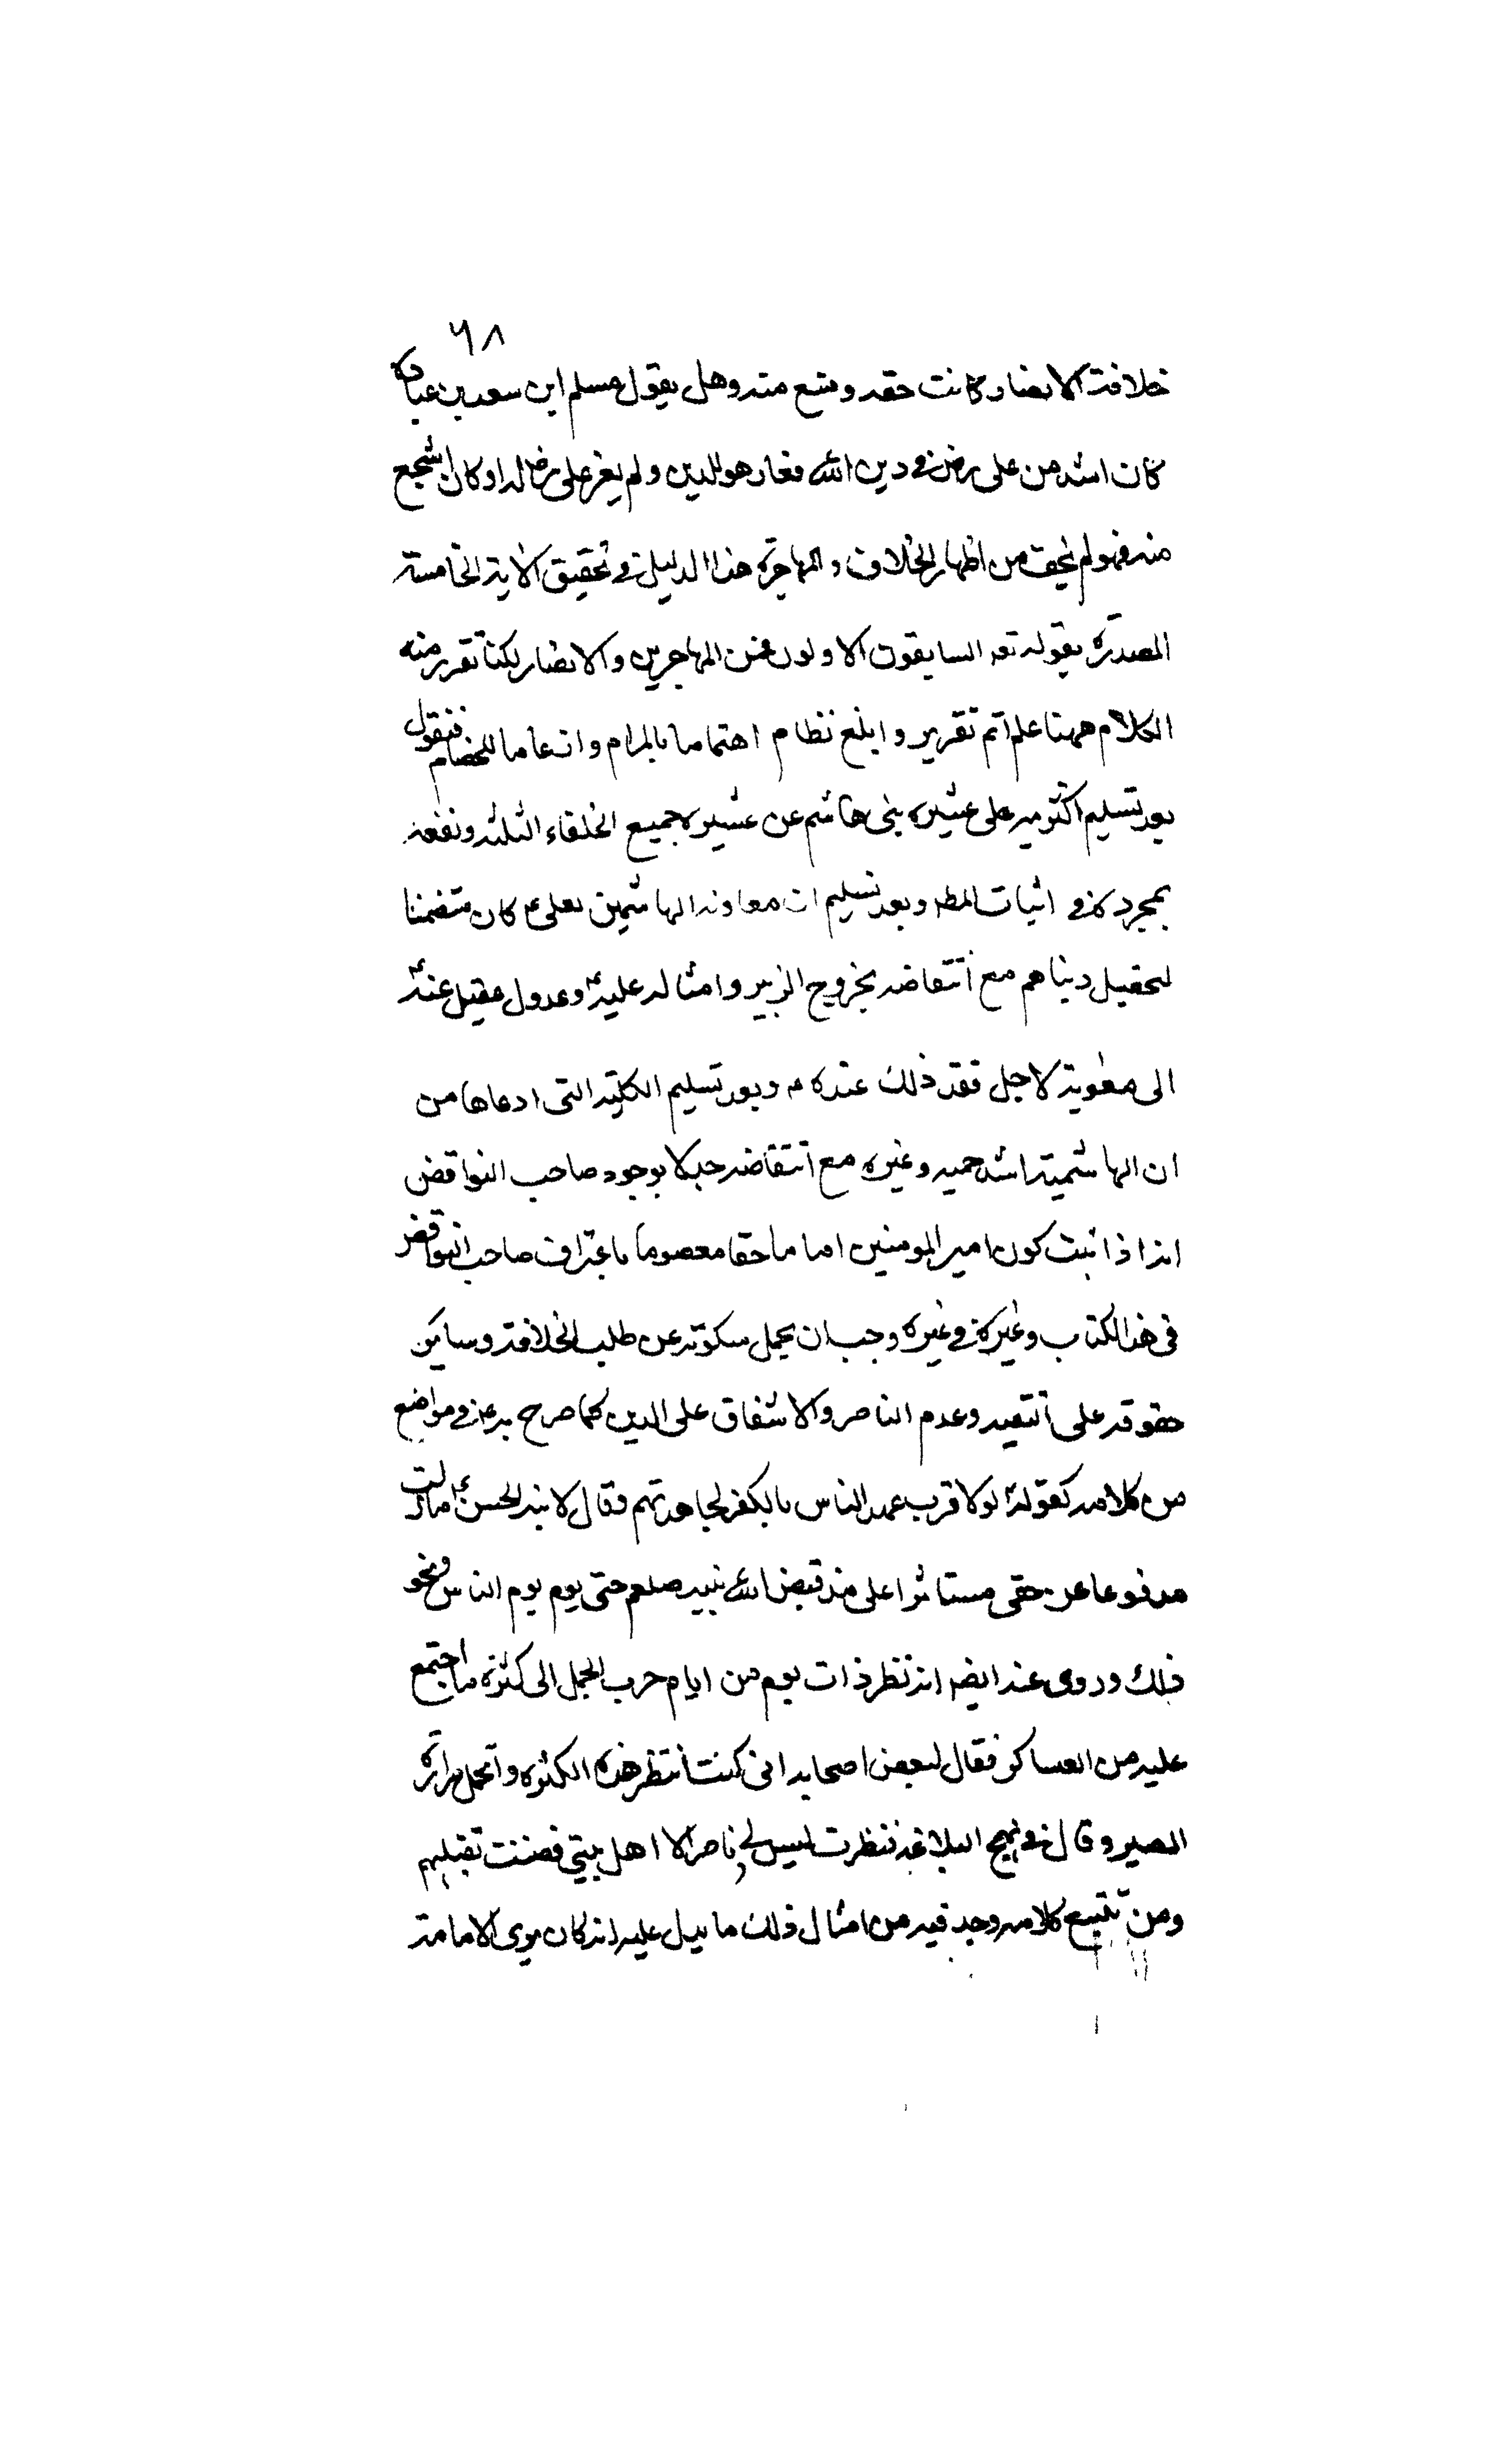 ٦٨
خلافة الانصار كانت حقه ومنع منه وهل يقول مسلم ان سعد بن عبادة
كان اشد من على رض في دين الله فغار هو للدين ولم يغر على رض له او كان اشجع
منه فهو لم يخف من اظهار الخلاف والمهاجرة هذا الدليل في تحقيق الاية الخامسة
المصدرة بقوله تعه السابقون الاولون من المهاجرين والانصار لكنا نقرر منه
الكلام ههنا على اتم تقرير وابلغ نظام اهتماما بالمرام وارغاما للخصام فنقول
بعد تسليم اكثرية على عشيرة بنى هاشم عن عشيرة جميع الخلفاء الثلثه ونفعه
بمجرده في اثبات المطه وبعد تسليم ان معاونة الهاشمين لعلى ع كان متضمنا
لتحصيل دنياهم مع انتقاضه بخروج الزبير وامثاله عليه ع وعدول عقيل عنه ع
الى معوية لاجل فقد ذلك عنده ع وبعد تسليم الكلية التى ادعاها من
ان الهاشمية اشد حمية وغيره مع انتقاضه جدلا بوجود صاحب النواقض
انه اذا ثبت كون امير المومنين اماما حقا معصوما باعتراف صاحب النواقض
فى هذا الكتاب وغيره في غيره وجب ان يحمل سكوته عن طلب الخلافة وساير
حقوقه على التقيه وعدم الناصر والاشفاق على الدين كما صرح به ع في مواضع
من كلامه كقوله ع لولا قرب عهد الناس بالكفر لجاهدتهم فقال لابنه الحسن ع مازلت
مدفوعا عن حقى مستاثرا على منذ قبض الله نبيه صلعم حتى يوم يوم الناس ونحو
ذلك وروى عنه ايضه انه نظر ذات يوم من ايام حرب الجمل الى كثرة ما اجتمع
عليه من العساكر فقال لبعض اصحابه انى كنت انتظر هذه الكثرة واتحمل مرارة
الصبر وقال في نهج البلاغه فنظرت ليس لي ناصر الا اهل بيتي فضننت تقبلهم
ومن تتبع كلامه وجد فيه من امثال ذلك ما يدل عليه انه كان يرى الامامة